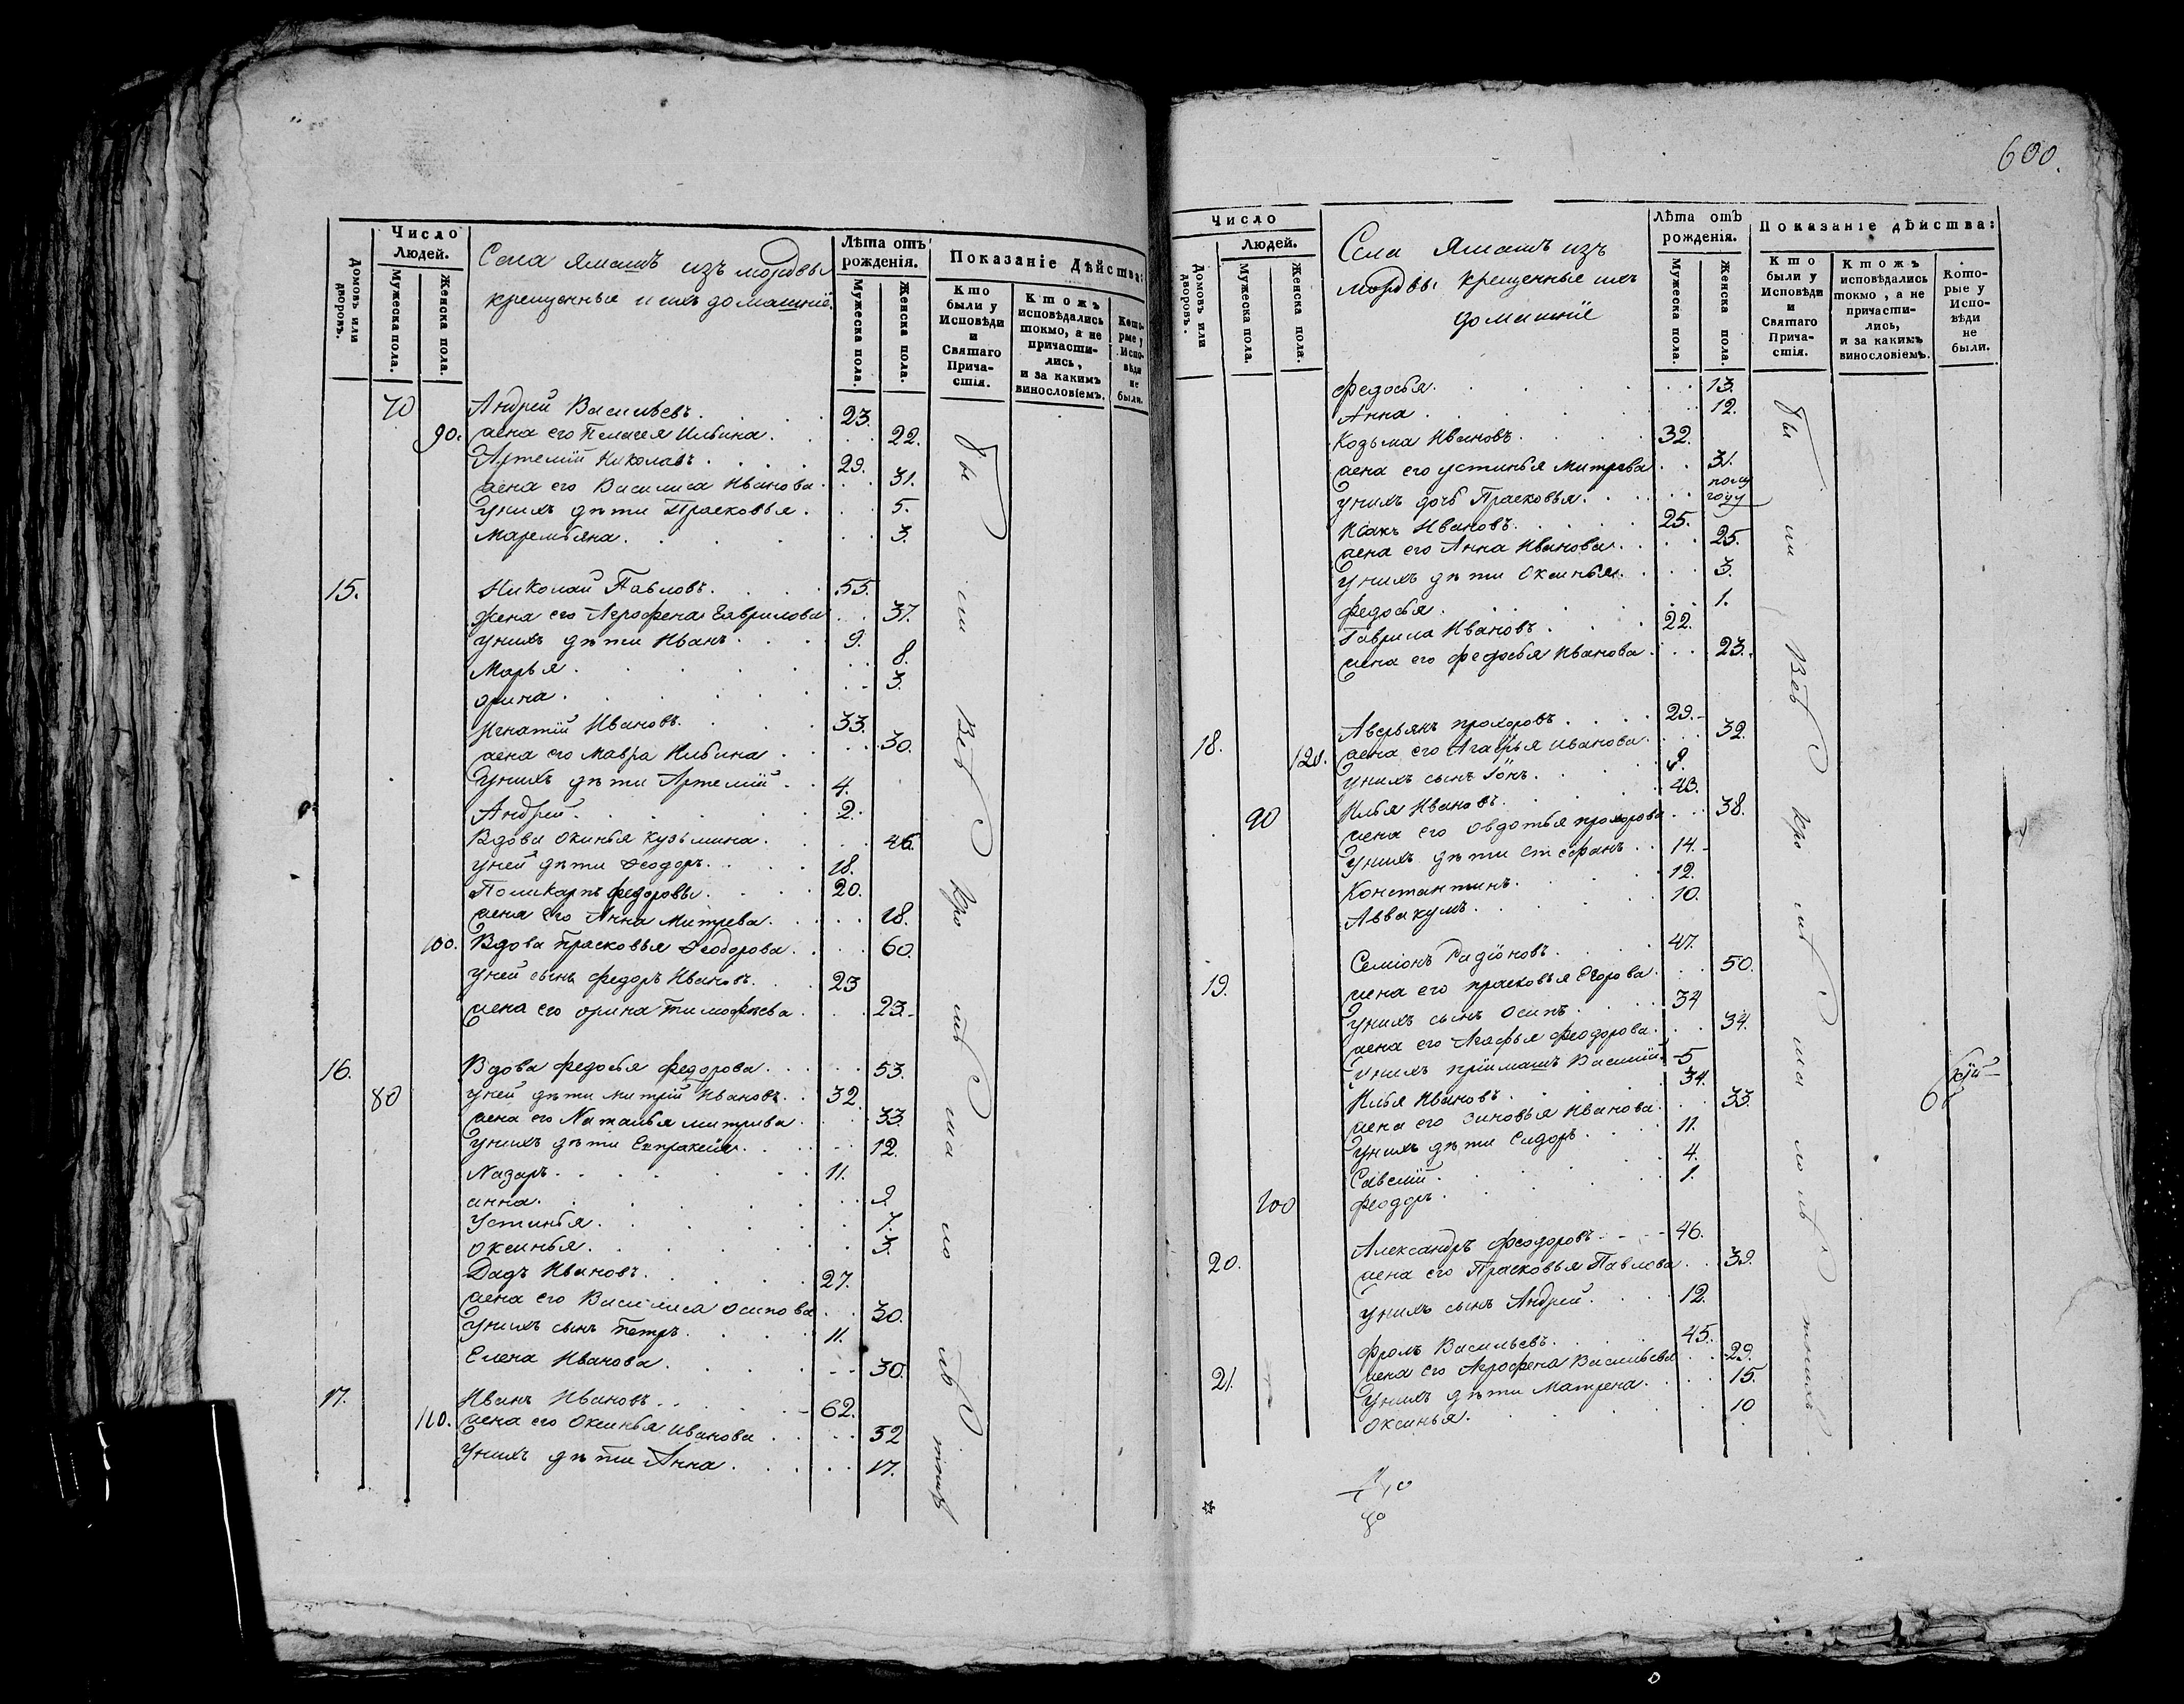 600.
Число
Людей.
Домовъ или дворовъ.
Мужеска пола.
Женска пола.
Села Ямашъ изъ мордвы
крещенные и ихъ домашніе.
Лѣта отъ рожденія.
Мужеска пола.
Женска пола.
Показаніе Дѣйства:
Кто были у Исповѣди и Святаго Причастія.
Ктожъ исповѣдались токмо, а не причастились, и за какимъ винословіемъ.
Которые у Исповѣди не были.
70 Андрей Васильевъ. 23.
90. жена его Пелагея Ильина. 22.
Артемій Николаевъ. 29.
жена его Василиса Иванова. 31.
у нихъ дѣти Прасковья. 5.
Маремьяна. 3.
15. Николай Павловъ. 55.
жена его Агрофена Гаврилова 37.
у нихъ дѣти Иванъ. 9.
Марья. 8.
орина. 3.
Игнатій Ивановъ. 33.
жена его Мавра Ильина. 30.
у нихъ дѣти Артемій. 4.
Андрей. 2.
Вдова Окинья кузьмина. 46.
у ней дѣти Феодоръ. 18.
Поликарпъ федоровы. 20.
жена его Анна Митрева. 18.
100. Вдова Прасковья Феодорова. 60.
у ней сынъ федоръ Ивановъ. 23
жена его орина Тимофѣева. 23.
16. Вдова федосья федорова. 53.
80 у ней дѣти митрій Ивановъ. 32.
жена его Наталья митрива. 33.
у нихъ дѣти Евпраксия. 12.
Назаръ. 11.
анна. 9.
Устинья. 7.
Оксинья. 3.
Дадъ Ивановъ. 27.
жена его Василиса осипова. 30.
у нихъ сынъ петръ. 11.
Елена Иванова. 30.
17. Иванъ Ивановъ. 62.
110. жена его Оксинья иванова. 52
у нихъ дѣти Анна. 17.
бы ли Всѣ кро мѣ ма ло лѣ тнихъ
Число
Людей.
Домовъ или дворовъ.
Мужеска пола.
Женска пола.
Села Ямашъ изъ
мордвы крещенные ихъ
домашніе
Лѣта отъ рожденія.
Мужеска пола.
Женска пола.
Показаніе дѣйства:
Кто были у Исповѣди и Святаго Причастія.
Ктожъ исповѣдались токмо, а не причастились, и за какимъ винословіемъ.
Которые у Исповѣди не были.
федосья. 13.
Анна. 12.
Козьма Ивановъ. 32.
жена его устинья митрева. 31.
у нихъ дочь Прасковья. полу году
Исакъ Ивановъ. 25.
жена его Анна Иванова. 25.
у нихъ дѣти Оксинья. 3.
федосья. 1.
Гаврила Ивановъ. 22.
жена его федосья Иванова. 23.
18. Аверьянъ прохоровъ. 29.
120. жена его Агафья иванова. 32.
у нихъ сынъ Іонъ.
90 Илья Ивановъ. 43.
жена его Овдотья прохорова. 38.
у нихъ дѣти Стефанъ. 14.
Константинъ. 12.
Аввакумъ. 10.
19. Семіонъ Радіоновъ. 47.
жена его прасковья Егорова. 50.
у нихъ сынъ Осипъ. 34
жена его Агафья феодорова. 34.
у нихъ пріимашъ Василій. 5
Илья Ивановъ. 34.
жена его зиновья Иванова. 33.
у нихъ дѣти Сидоръ. 11.
Савелій. 4.
100 феодоръ. 1.
20. Александръ феодоровъ. 46.
жена его Прасковья Павлова. 39.
у нихъ сынъ Андрей. 12.
21. фролъ Васильевъ. 45.
жена его Агрофена Васильева 29.
у нихъ дѣти Матрена. 15.
Оксинья. 10
бы ли Всѣ кро мѣ ма ло лѣ тнихъ.